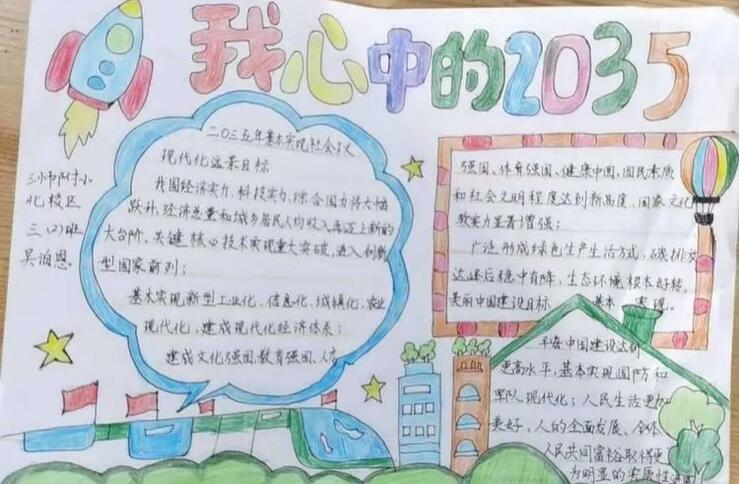 我心中的2035
三师附小
北校区
三、(4)班
吴泊恩
二〇三五年基本实现社会主义
现代化远景目标
我国经济实力、科技实力、综合国力将大幅
跃升,经济总量和城乡居民人均收入再迈上新的
大台阶,关键核心技术实现重大突破,进入创新
型国家前列;
基本实现新型工业化、信息化、城镇化、农业
现代化,建成现代化经济体系;
建成文化强国、教育强国、人才
强国、体育强国、健康中国,国民素质
和社会文明程度达到新高度,国家文化
软实力显著增强;
广泛形成绿色生产生活方式,碳排放
达峰后稳中有降,生态环境根本好转,
美丽中国建设目标 基本 实现。
平安中国建设达到
更高水平,基本实现国防和
军队现代化;人民生活更加
美好,人的全面发展、全体
人民共同富裕取得更
为明显的实质性进